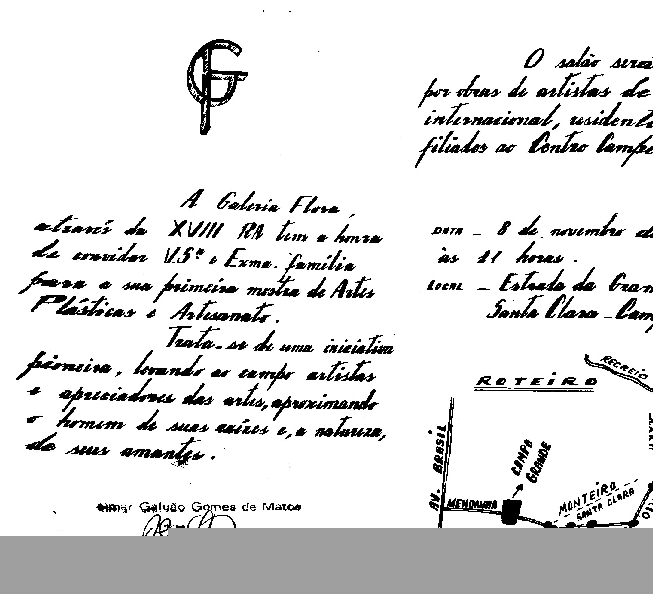 GF
A Galeria Flora,
através da XVIII RA tem a honra
de convidar V.Sª e Exma. família
para a sua primeira mostra de Artes
Plásticas e Artesanato.
Trata-se de uma iniciativa
pioneira, levando ao campo artistas
e apreciadores das artes, aproximando
o homem de suas raízes e, a natureza,
de seus amantes.
Galvão Gomes de Matos
O salão será
por obras de artistas de
internacional, resident
filiados ao Centro Campe
DATA - 8 de novembro
às 11 horas.
LOCAL - Estrada da Gram
Santa Clara - Camp
ROTEIRO
RECREIO
AV. BRASIL
MENDANHA
CAMPO
GRANDE
MONTEIRO
SANTA CLARA